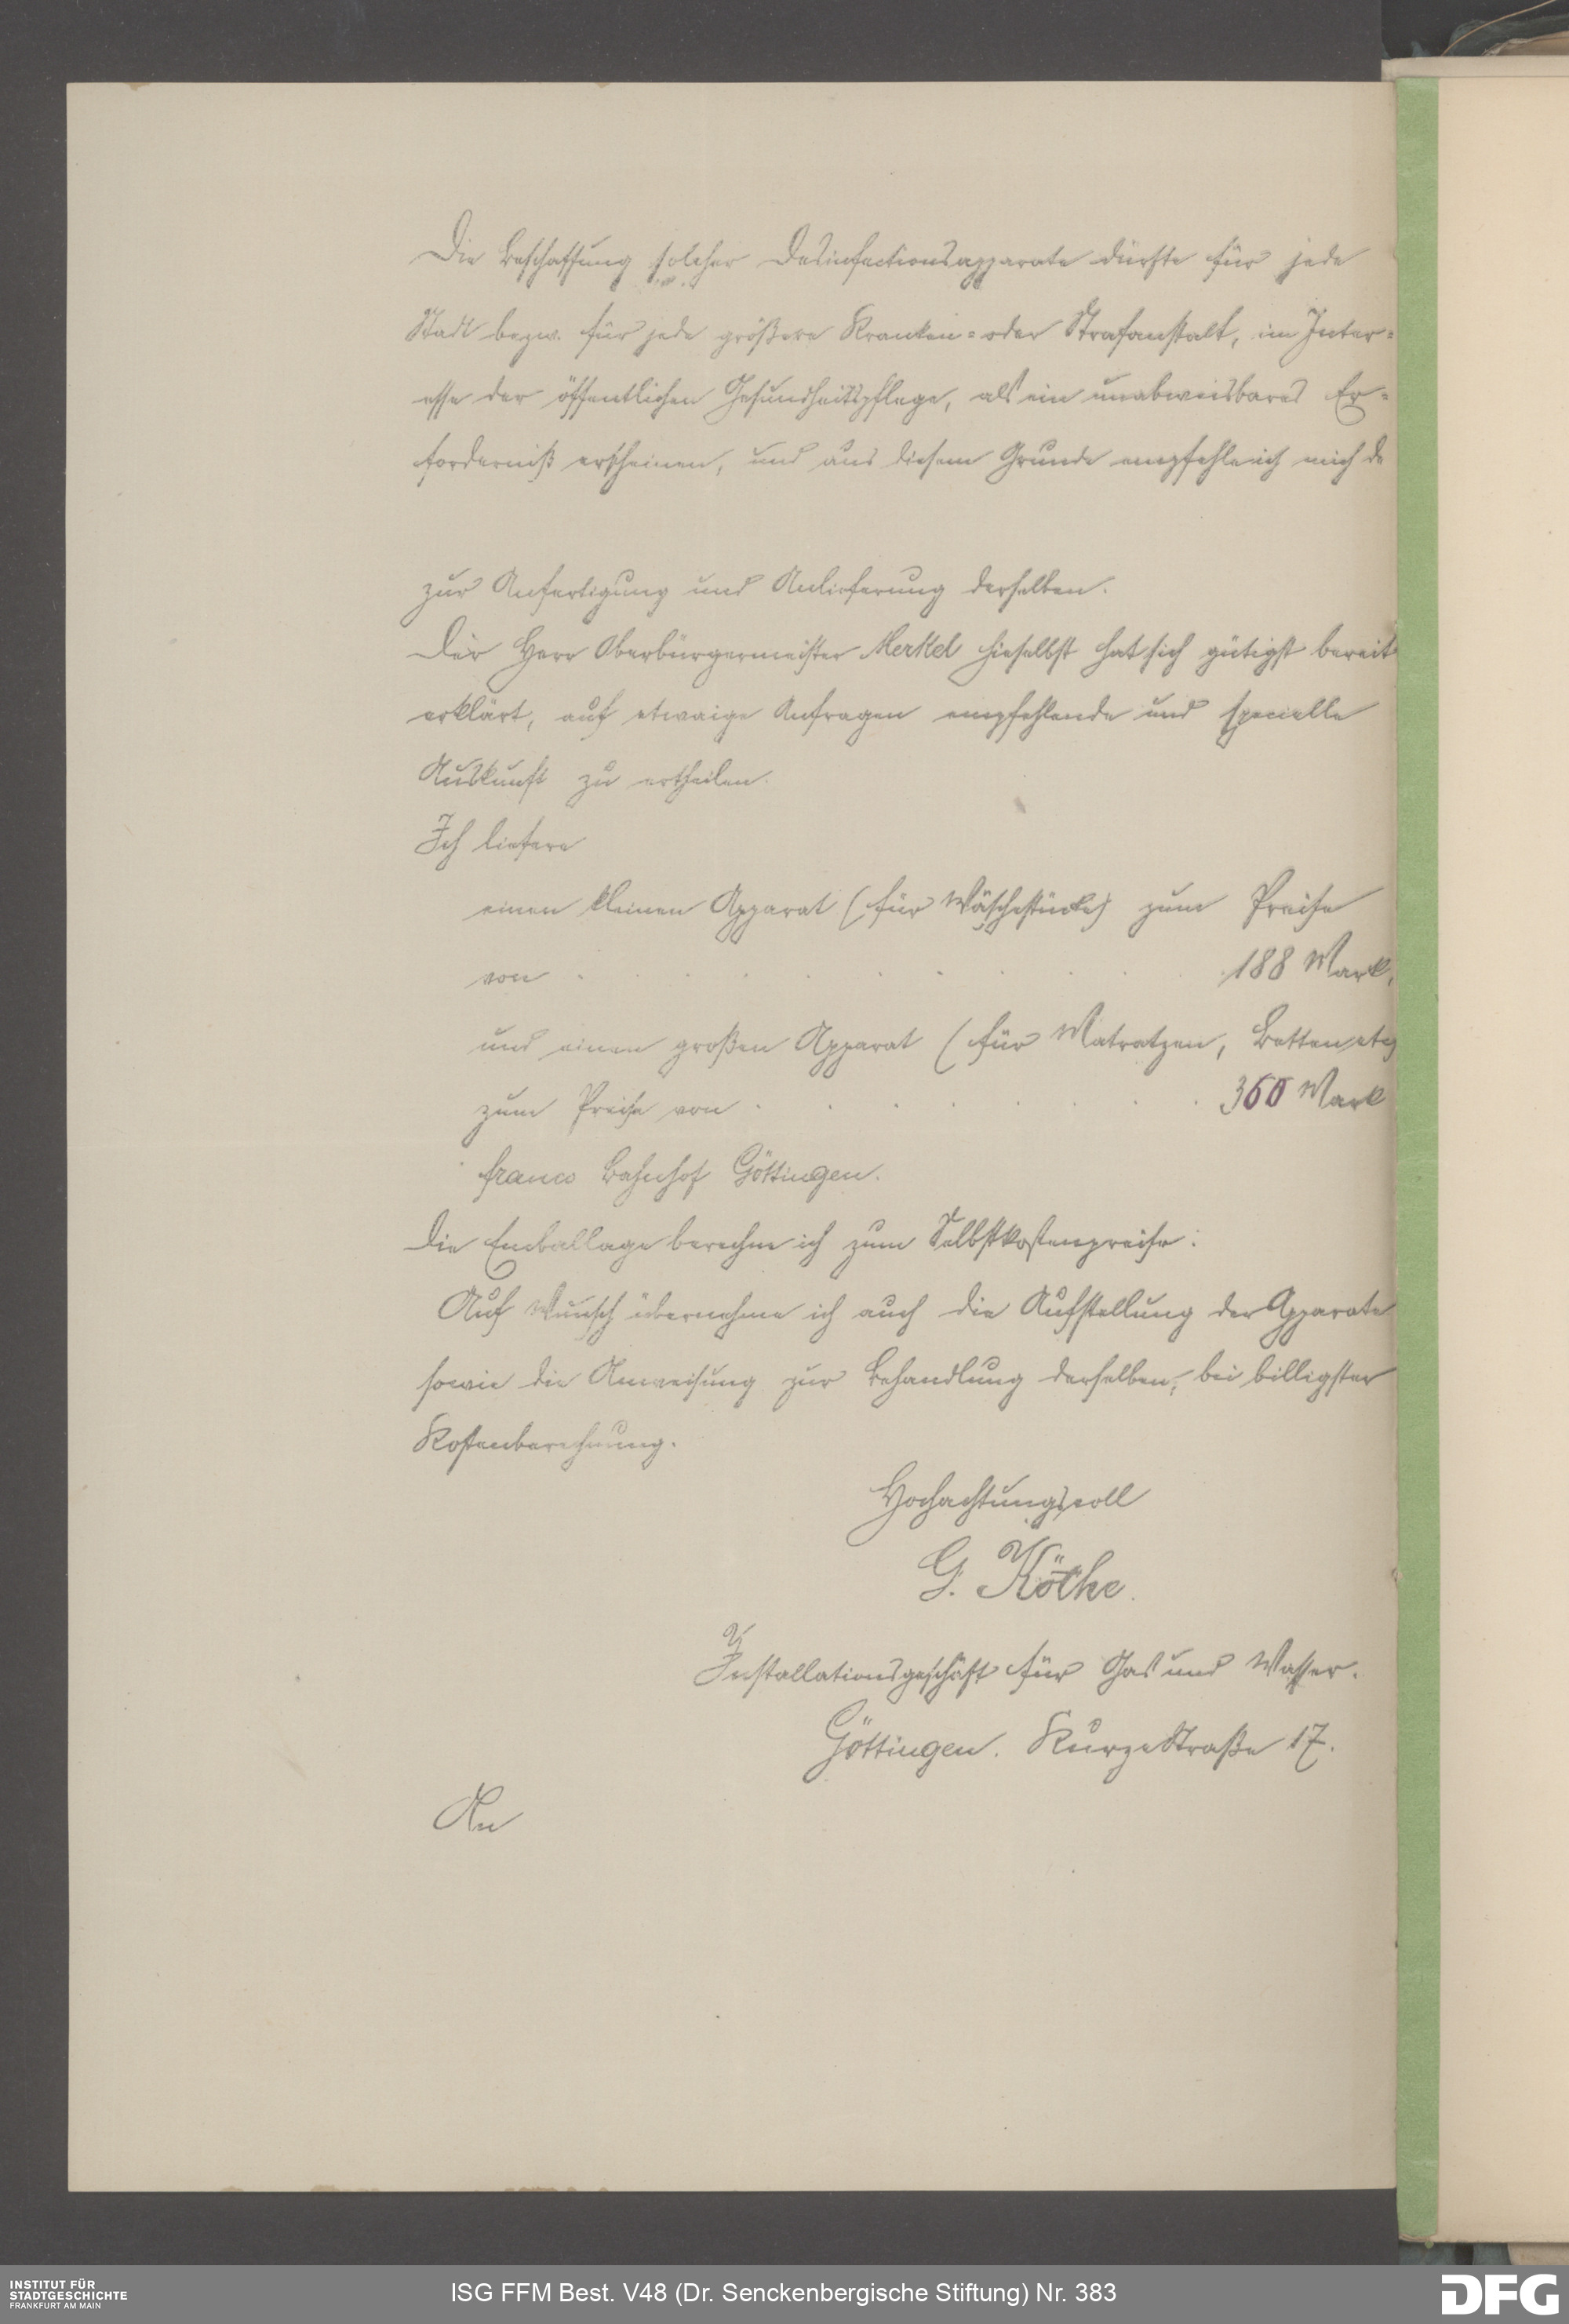 Die Beschaffung solcher Desinfectionsapparate dürfte für jede
Stadt bezw. für jede größere Kranken= oder Strafanstalt, im Inter=
esse der öffentlichen Gesundheitspflege, als ein unabweisbares Er=
forderniß erscheinen, und aus diesem Grunde empfehle ich mich
zur Anfertigung und Anlieferung derselben.
Der Herr Oberbürgermeister Merkel hieselbst hat sich gütigst bereit
erklärt, auf etwaige Anfragen empfehlende und specielle
Auskunft zu ertheilen.
Ich liefere
einen kleinen Apparat (für Wäschestücke) zum Preise
von . . . . . . . . . 188 Mark,
und einen großen Apparat (für Matratzen, Betten etc)
zum Preise von . . . . . . . 360 Mark
franco Bahnhof Göttingen.
Die Emballage berechne ich zum Selbstkostenpreise.
Auf Wunsch übernehme ich auch die Aufstellung der Apparate
sowie die Anweisung zur Behandlung derselben, bei billigster
Kostenberechnung.
Hochachtungsvoll
G. Köthe.
Installationsgeschäft für Gas und Wasser.
Göttingen. Kurzestraße 17.
An
INSTITUT FÜR
STADTGESCHICHTE
FRANKFURT AM MAIN
ISG FFM Best. V48 (Dr. Senckenbergische Stiftung) Nr. 383
DFG